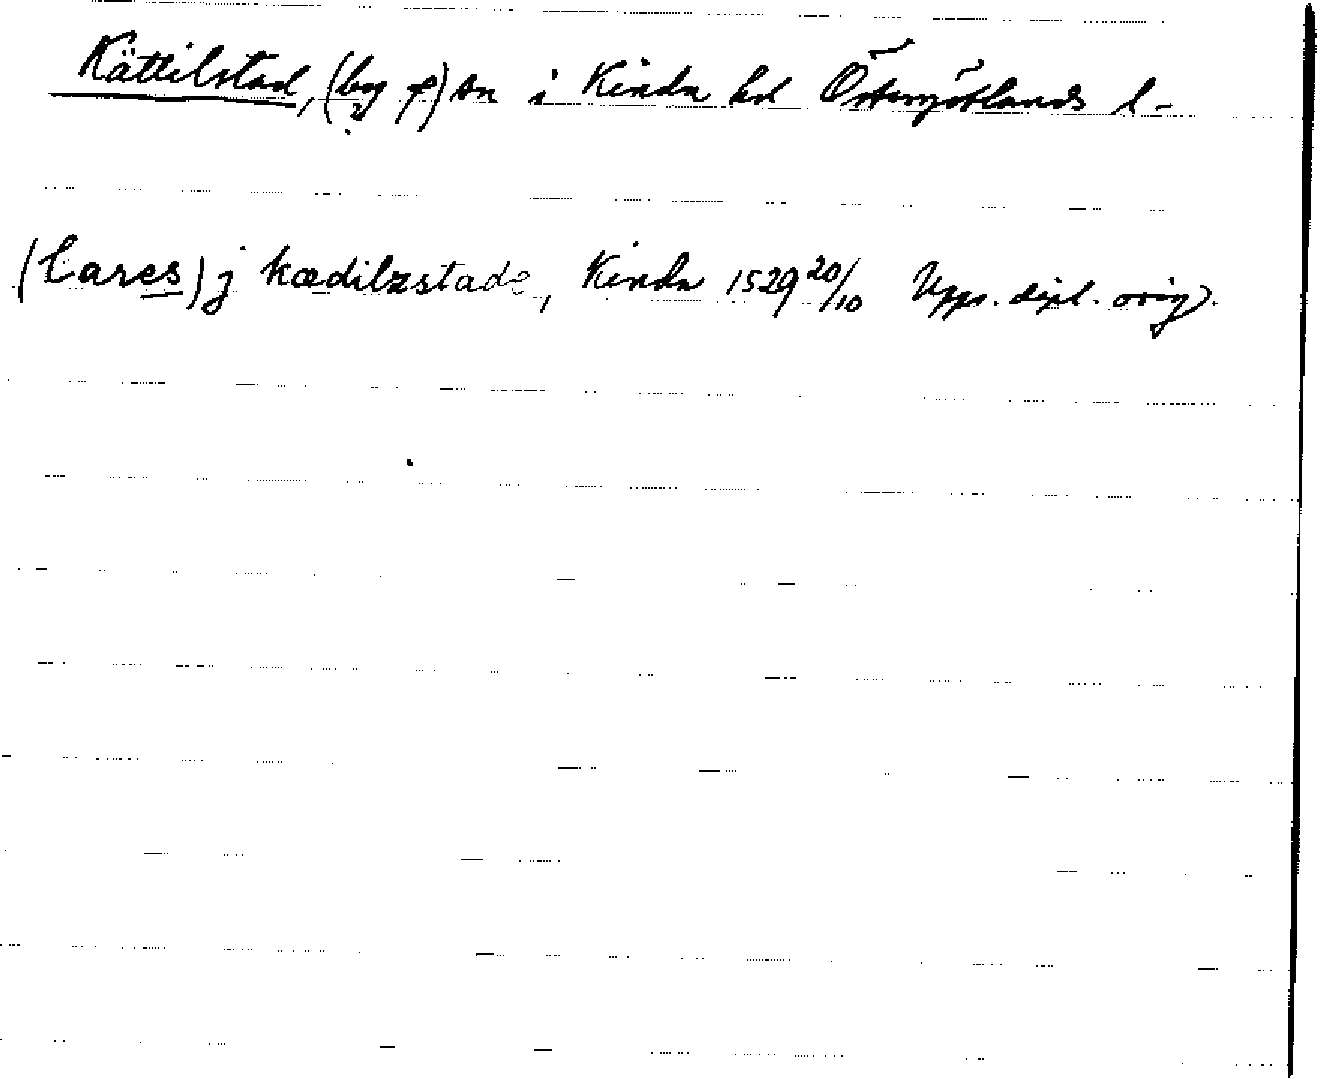 Kättilstad, (by o) sn i Kinda hd Östergötlands l-
(Lares) j kædilzstade, Kinda 1529 20/10 Upps. dipl. orig.